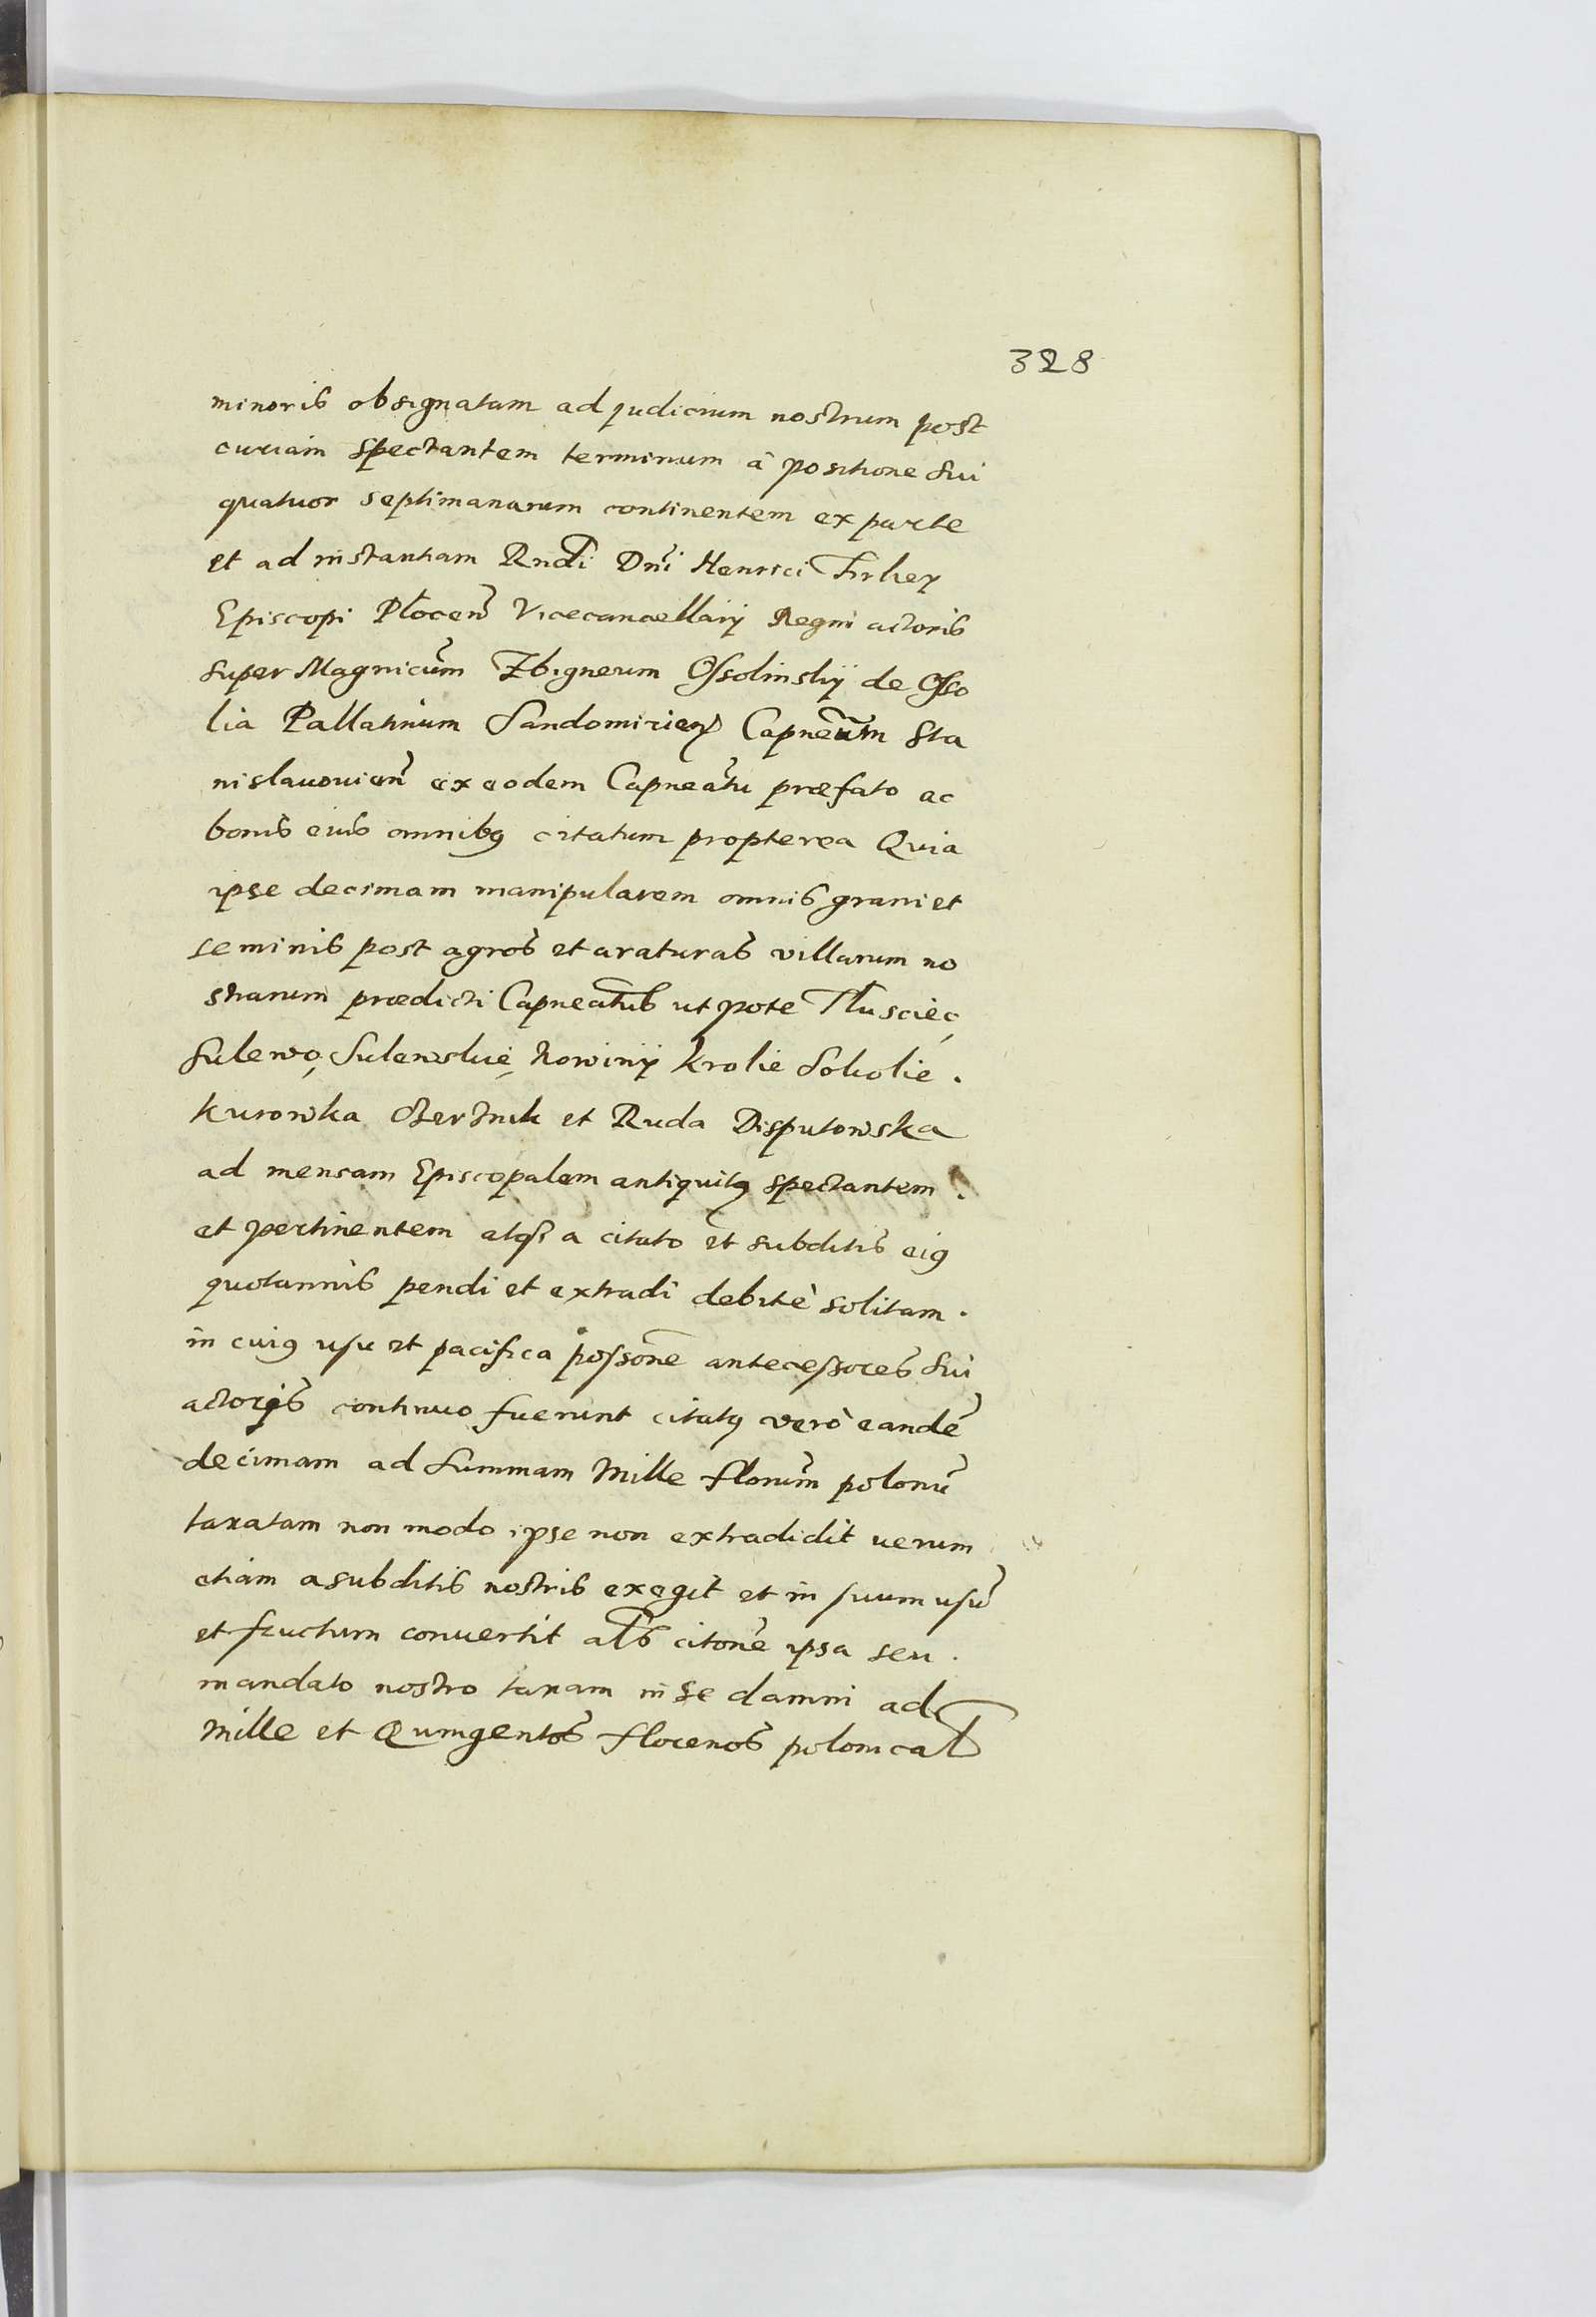 328
minoris obsignatam ad judicium nostrum post
curiam spectantem terminum à positione sui
quatuor septimanarum continentem ex parte
et ad instantiam Rndi Dni Henrici Firley
Episcopi Plocen Vicecancellarij Regni actoris
super Magnicum Zbigneum Ossolinskÿ de Osso
lia Pallatinum Sandomirien Capneum Sta
nislavovien ex eodem Capneatu præfato ac
bonis eius omnibꝯ citatum propterea Quia
ipse decimam manipularem omnis grani et
seminis post agros et araturas villarum no
strarum prædicti Capneatus ut pote Tlusciec,
Sulewo, Sulewskie, Nowinÿ Krolie Sokolie.
Kurowka et Ruda Disputowska
ad mensam Episcopalem antiquitꝯ spectantem.
et pertinentem atqꝫ a citato et subditis eiꝯ
quotannis pendi et extradi debitè solitam.
in cuiꝯ usu et pacifica possone antecessores sui
actoris continuo fuerunt citatꝯ verò eandē
decimam ad Summam Mille florum polonū
taxatam non modo ipse non extradidit verum
etiam a subditis nostris exegit et in suum usū
et fructum convertit alls citone ipsa seu.
mandato nostro taxam in se damni ad
Mille et Quingentos florenos polonical